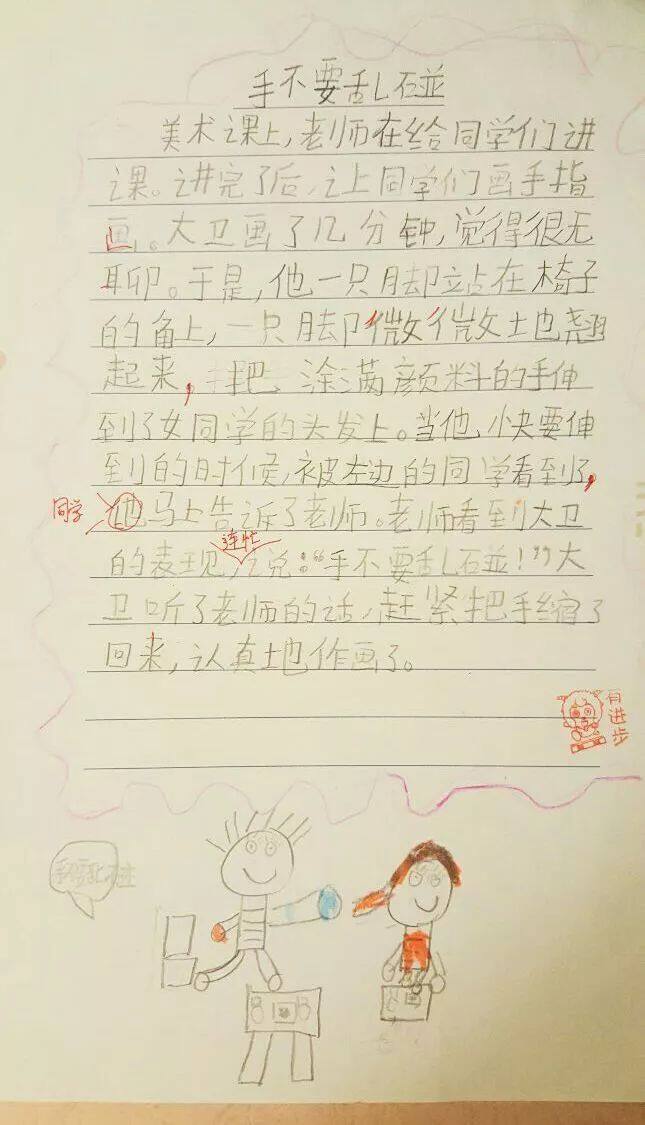 手不要乱碰
美术课上，老师在给同学们讲
课。讲完了后，让同学们画手指
画。大卫画了几分钟，觉得很无
聊。于是，他一只脚站在椅子
的角上，一只脚微微地翘
起来，把涂满颜料的手伸
到了女同学的头发上。当他快要伸
到的时候，被左边的同学看到了，
同学
他马上告诉了老师。老师看到大卫
连忙
的表现，说：“手不要乱碰！”大
卫听了老师的话，赶紧把手缩了
回来，认真地作画了。
有进步
手不要乱碰